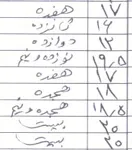 ۱۷ هفده
۱۶ شانزده
۱۲ دوازده
۱۹/۵ نوزده و نیم
۱۷ هفده
۱۸ هجده
۱۸/۵ هجده و نیم
۲۰ بیست
۲۰ بیست